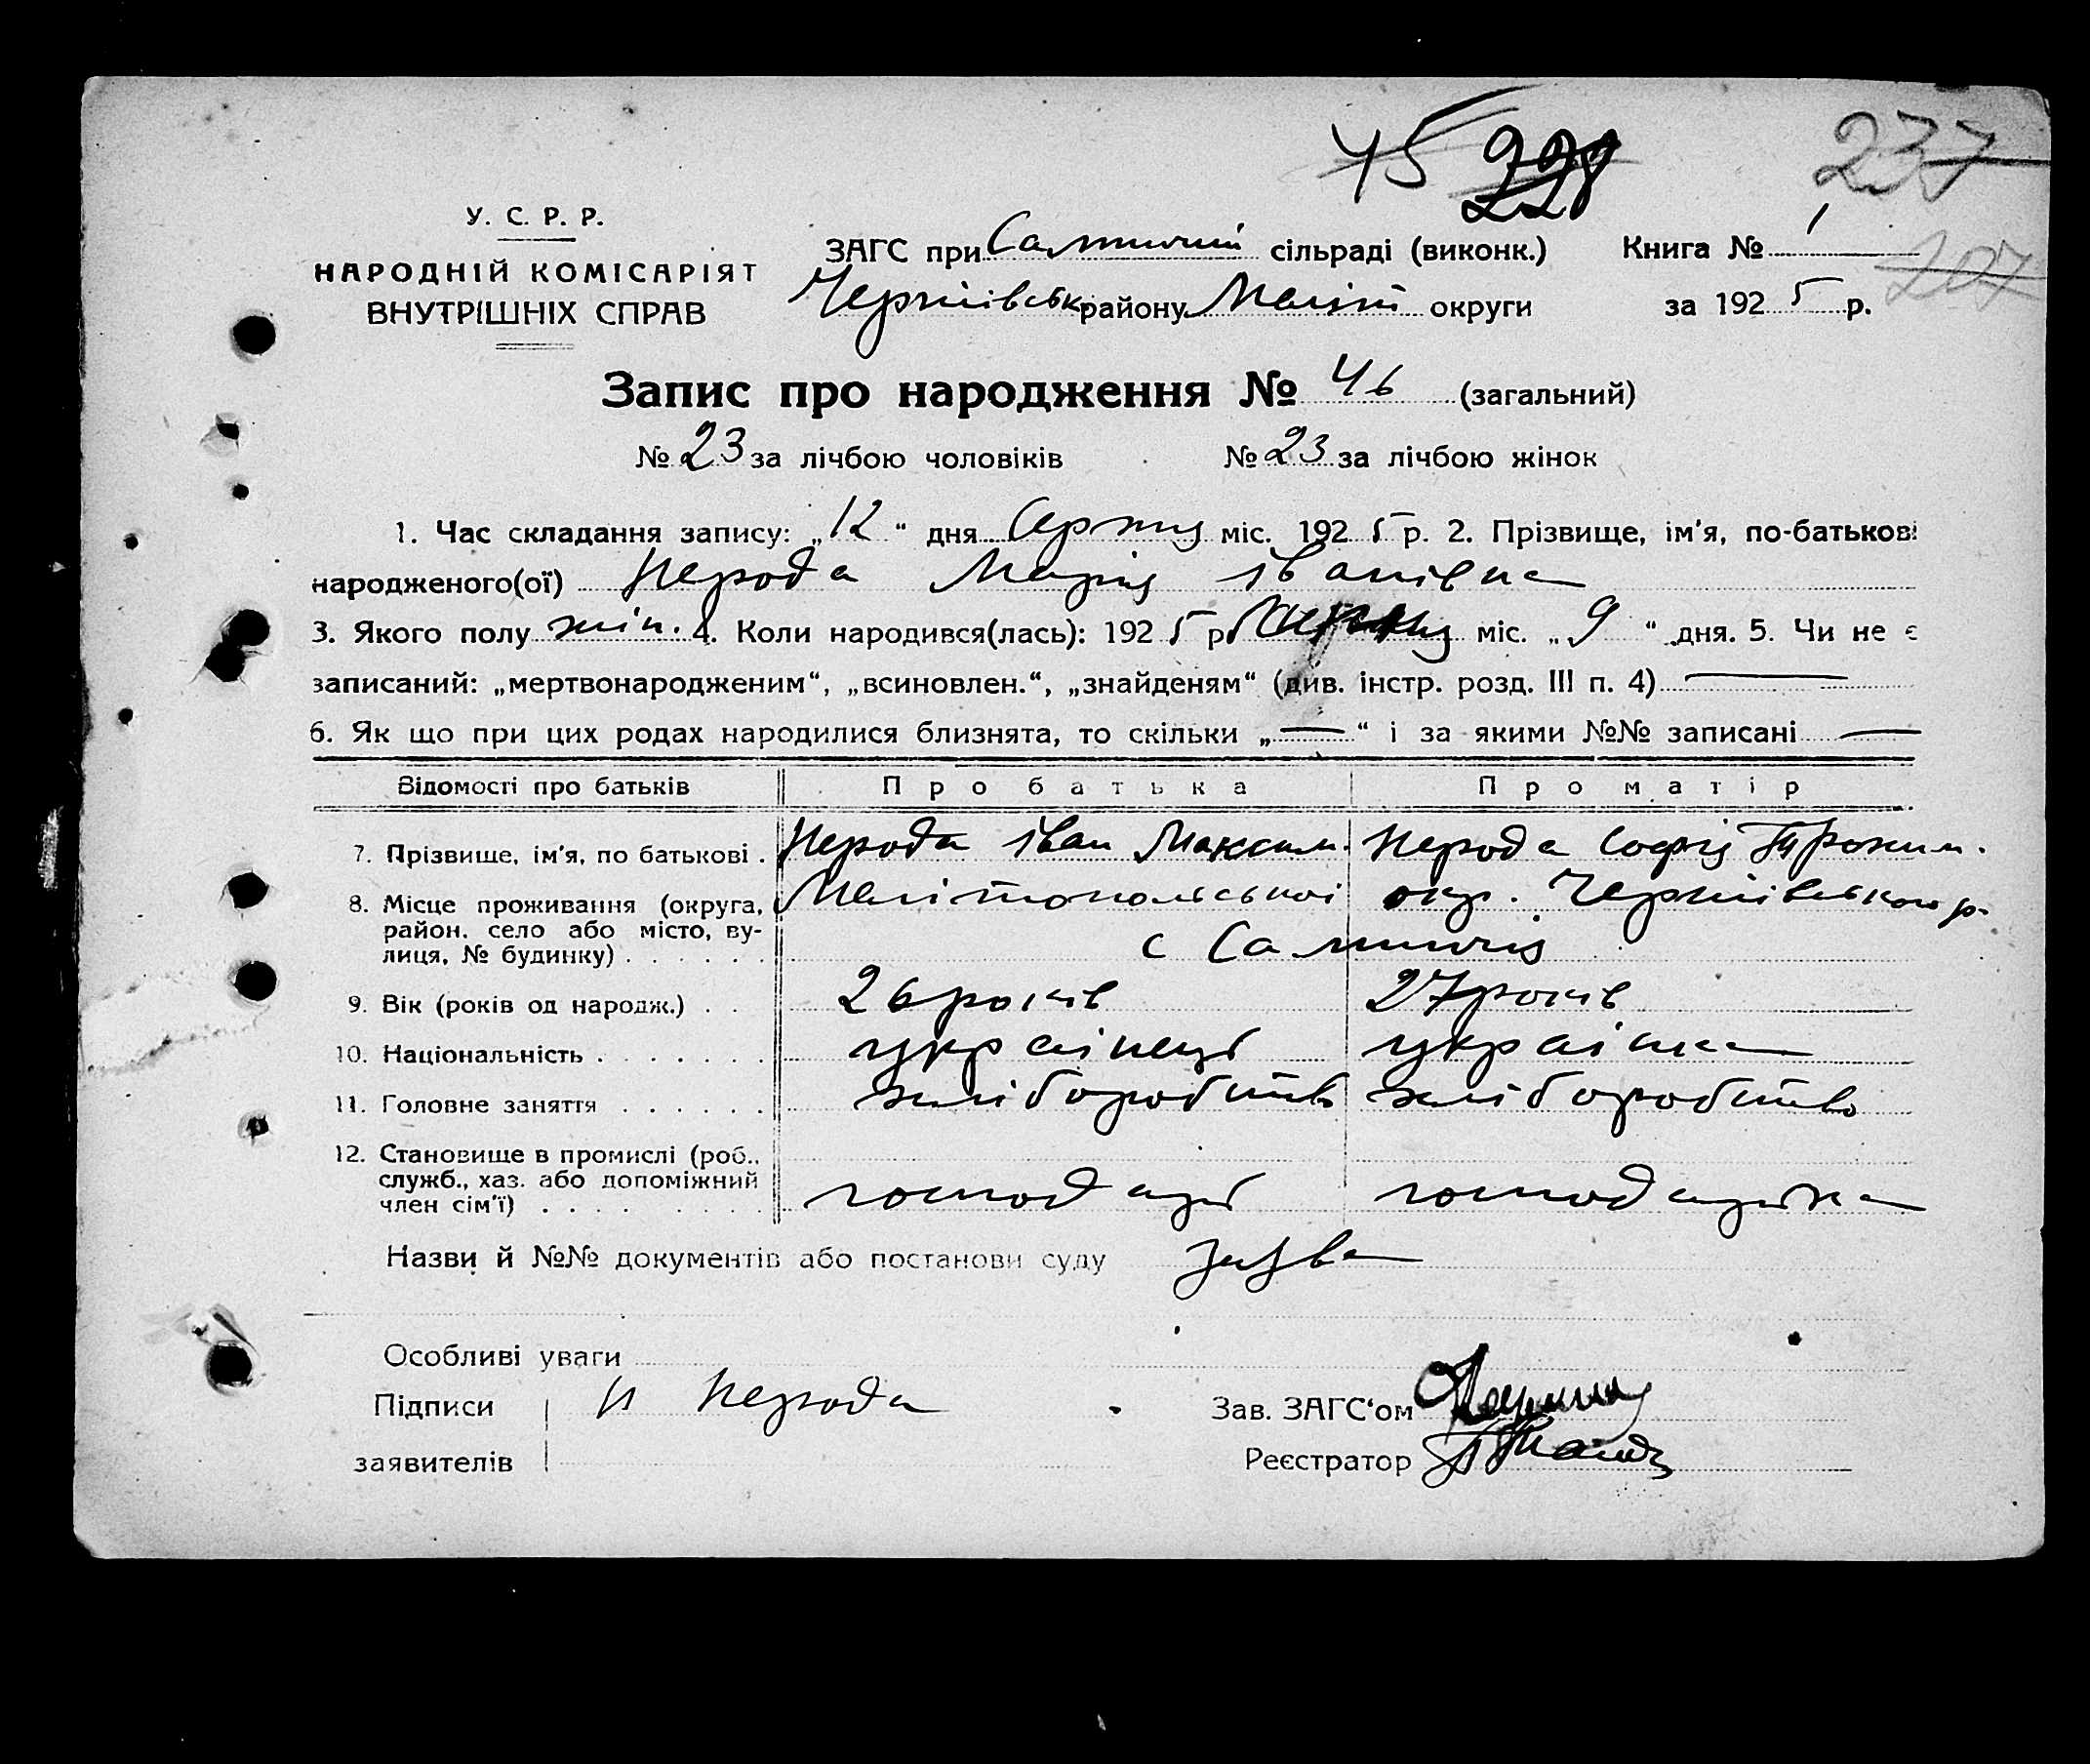 45 228 237
У. С. Р. Р.
НАРОДНІЙ КОМІСАРІЯТ
ВНУТРІШНІХ СПРАВ
ЗАГС при Салтичий сільраді (виконк.) Книга № 1
207
Чернігівськ району Меліт округи за 1925 р.
Запис про народження № 46 (загальний)
№ 23 за лічбою чоловіків № 23 за лічбою жінок
1. Час складання запису: „12“ дня Серпня міс. 1925 р. 2. Прізвище, ім'я, по-батькові
народженого(ої) Нерода Марія Іванівна
3. Якого полу жін. 4. Коли народився(лась): 1925 р. Серпня міс. „9“ дня. 5. Чи не є
записаний: „мертвонародженим“, „всиновлен.“, „знайденям“ (див. інстр. розд. III п. 4) —
6. Як що при цих родах народилися близнята, то скільки „—“ і за якими №№ записані —
Відомості про батьків Про батька Про матір
7. Прізвище, ім'я, по батькові . Нерода Іван Максим. Нерода Софія Трохим.
8. Місце проживання (округа, район, село або місто, вулиця, № будинку) . . . . . . Мелітопольської окр. Чернігівського р.
с Салтичія
9. Вік (років од народж.) . . 26 років 27 років
10. Національність . . . . . . . українець українка
11. Головне заняття . . . . . . хліборобство хліборобство
12. Становище в промислі (роб., служб., хаз. або допоміжний член сім'ї) . . . . . . . . . господарь господарька
Назви й №№ документів або постанови суду заява
Особливі уваги
Підписи И Нерода Зав. ЗАГС'ом
заявителів Реєстратор